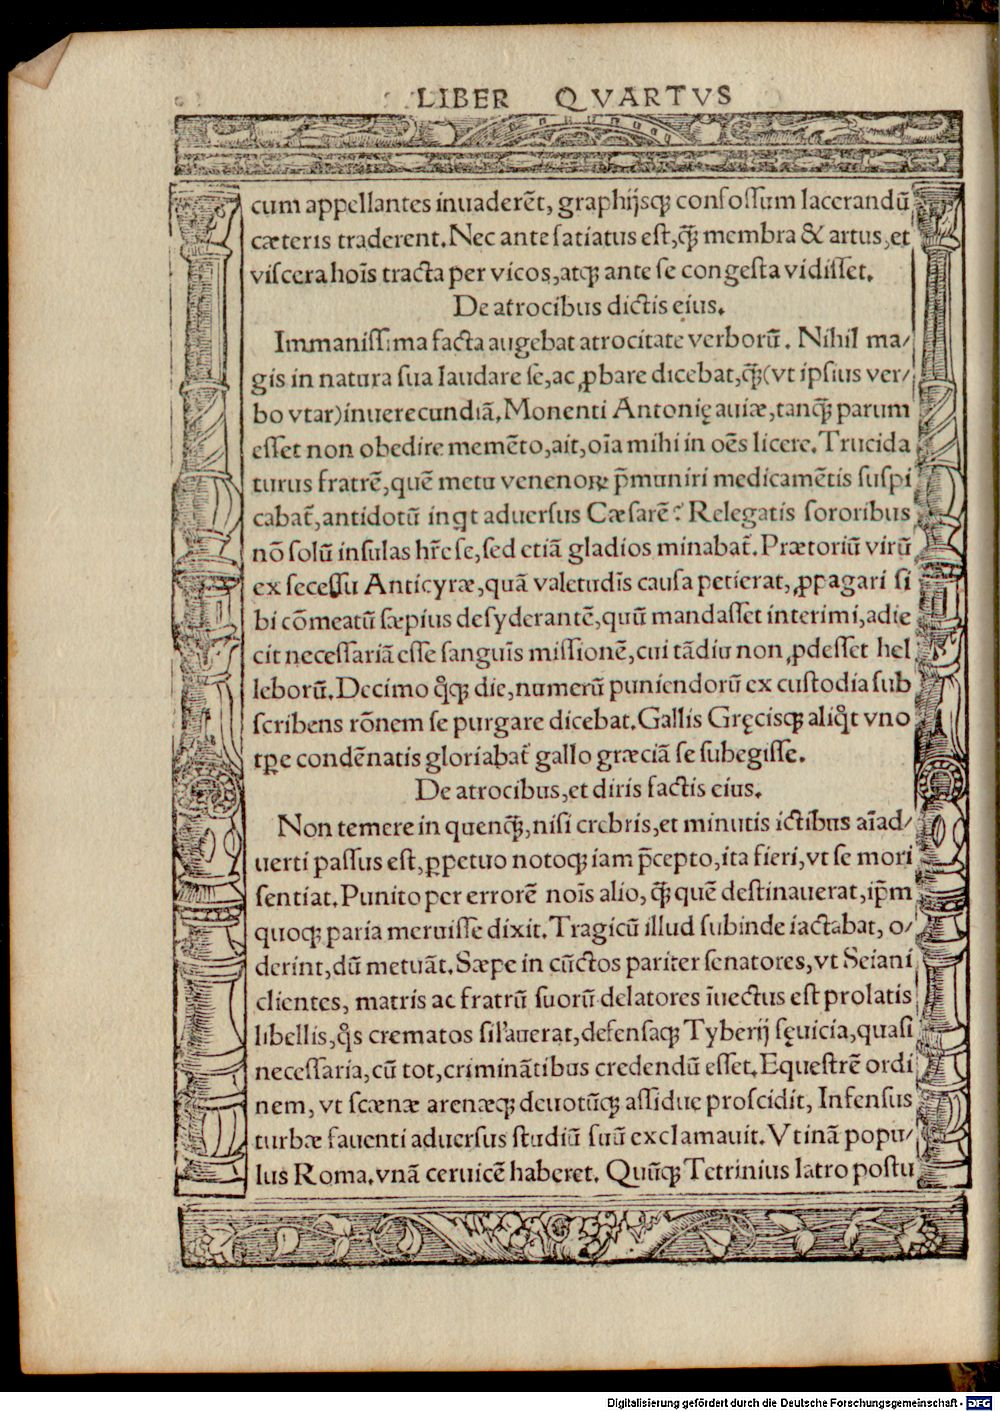 LIBER QVARTVS
cum appellantes inuaderẽt, graphijsqꝫ confoſſum lacerandũ
cæteris traderent. Nec ante ſatiatus eſt, q̃ꝫ membra & artus, et
viſcera hoı̃s tracta per vicos, atqꝫ ante ſe congeſta vidiſſet.
De atrocibus dictis eius.
Immaniſſima facta augebat atrocitate verborũ. Nihil ma/
gis in natura ſua laudare ſe, ac ꝓbare dicebat, q̃ꝫ (vt ipſius ver/
bo vtar) inuerecundiã. Monenti Antonię auiæ, tanq̃ꝫ parum
eſſet non obedire memẽto, ait, oı̃a mihi in oẽs licere. Trucida
turus fratrẽ, quẽ metu venenoꝝ p̃muniri medicamẽtis ſuſpi
cabat᷑, antidotũ inqt aduerſus Cæſarẽ? Relegatis ſororibus
nõ ſolũ inſulas hr̃e ſe, ſed etiã gladios minabat᷑. Prætoriũ virũ
ex ſeceſſu Anticyræ, quã valetudı̃s cauſa petierat, ꝓpagari ſi
bi cõmeatũ ſæpius deſyderantẽ, quũ mandaſſet interimi, adie
cit neceſſariã eſſe ſanguı̃s miſſionẽ, cui tãdiu non ꝓdeſſet hel
leborũ. Decimo qͦqꝫ die, numerũ puniendorũ ex cuſtodia ſub
ſcribens rõnem ſe purgare dicebat. Gallis Gręcisqꝫ aliqͦt vno
tꝑe condẽnatis gloriabat᷑ gallo græciã ſe ſubegiſſe.
De atrocibus, et diris factis eius.
Non temere in quenq̃ꝫ, niſi crebris, et minutis ictibus aı̃ad/
uerti paſſus eſt, ꝑpetuo notoqꝫ iam p̃cepto, ita fieri, vt ſe mori
ſentiat. Punito per errorẽ noı̃s alio, q̃ꝫ quẽ deſtinauerat, ip̃m
quoqꝫ paria meruiſſe dixit. Tragicũ illud ſubinde iactabat, o/
derint, dũ metuãt. Sæpe in cũctos pariter ſenatores, vt Seiani
clientes, matris ac fratrũ ſuorũ delatores ı̃uectus eſt prolatis
libellis, qͦs crematos ſil'auerat, defenſaqꝫ Tyberij ſęuicia, quaſi
neceſſaria, cũ tot, criminãtibus credendũ eſſet. Equeſtrẽ ordi
nem, vt ſcænæ arenæqꝫ deuotũqꝫ aſſidue proſcidit, Infenſus
turbæ fauenti aduerſus ſtudiũ ſuũ exclamauit. Vtinã popu/
lus Roma. vnã ceruicẽ haberet. Quũqꝫ Tetrinius latro poſtu
Digitalisierung gefördert durch die Deutsche Forschungsgemeinschaft - DFG